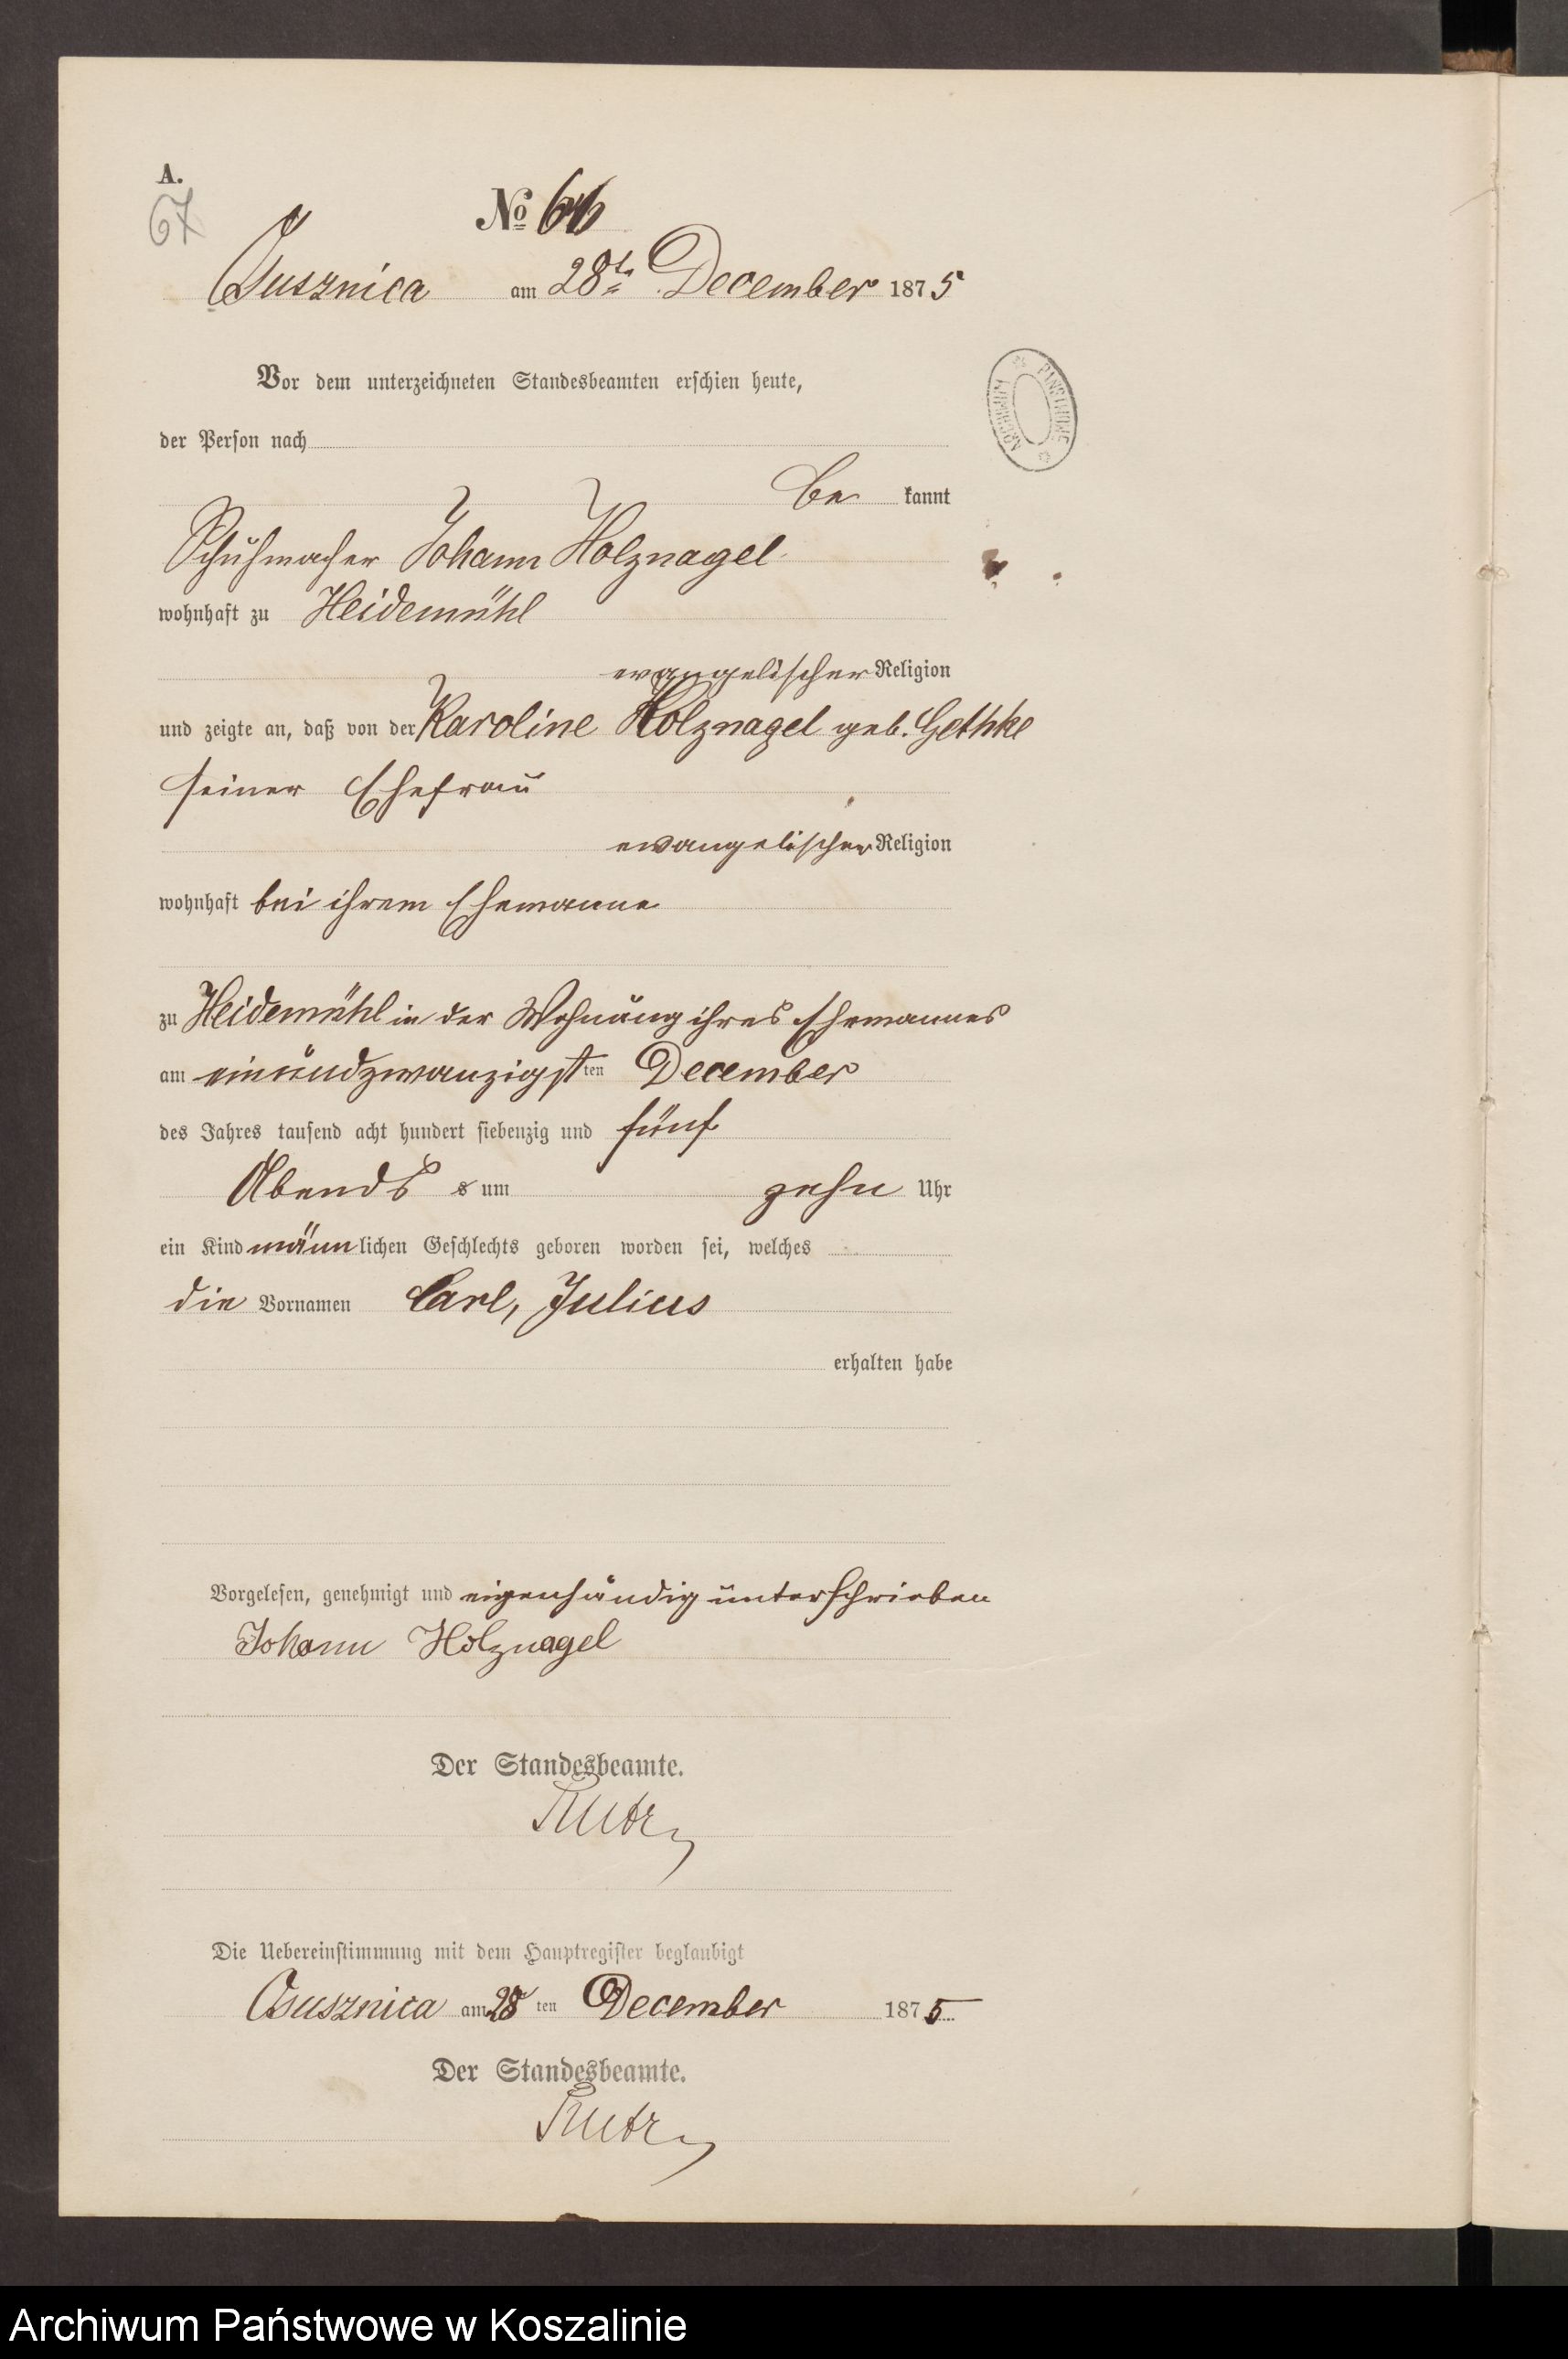 A.
67
No 66
Osusznica am 28t. December 1875
Vor dem unterzeichneten Standesbeamten erschien heute,
der Person nach
be kannt
Schuhmacher Johann Holznagel
wohnhaft zu Heidemühl
evangelischer Religion
und zeigte an, daß von der Karoline Holznagel geb. Gethke
seiner Ehefrau
evangelischer Religion
wohnhaft bei ihrem Ehemanne
zu Heidemühl in der Wohnung ihres Ehemannes
am einundzwanzigst ten December
des Jahres tausend acht hundert siebenzig und fünf
Abends s um zehn Uhr
ein Kind männ lichen Geschlechts geboren worden sei, welches
die Vornamen Carl, Julius
erhalten habe
Vorgelesen, genehmigt und eigenhändig unterschrieben
Johann Holznagel
Der Standesbeamte.
Die Uebereinstimmung mit dem Hauptregister beglaubigt
Osusznica am 28 ten December 1875
Der Standesbeamte.
ARCHIWUM PAŃSTWOWE
Archiwum Państwowe w Koszalinie